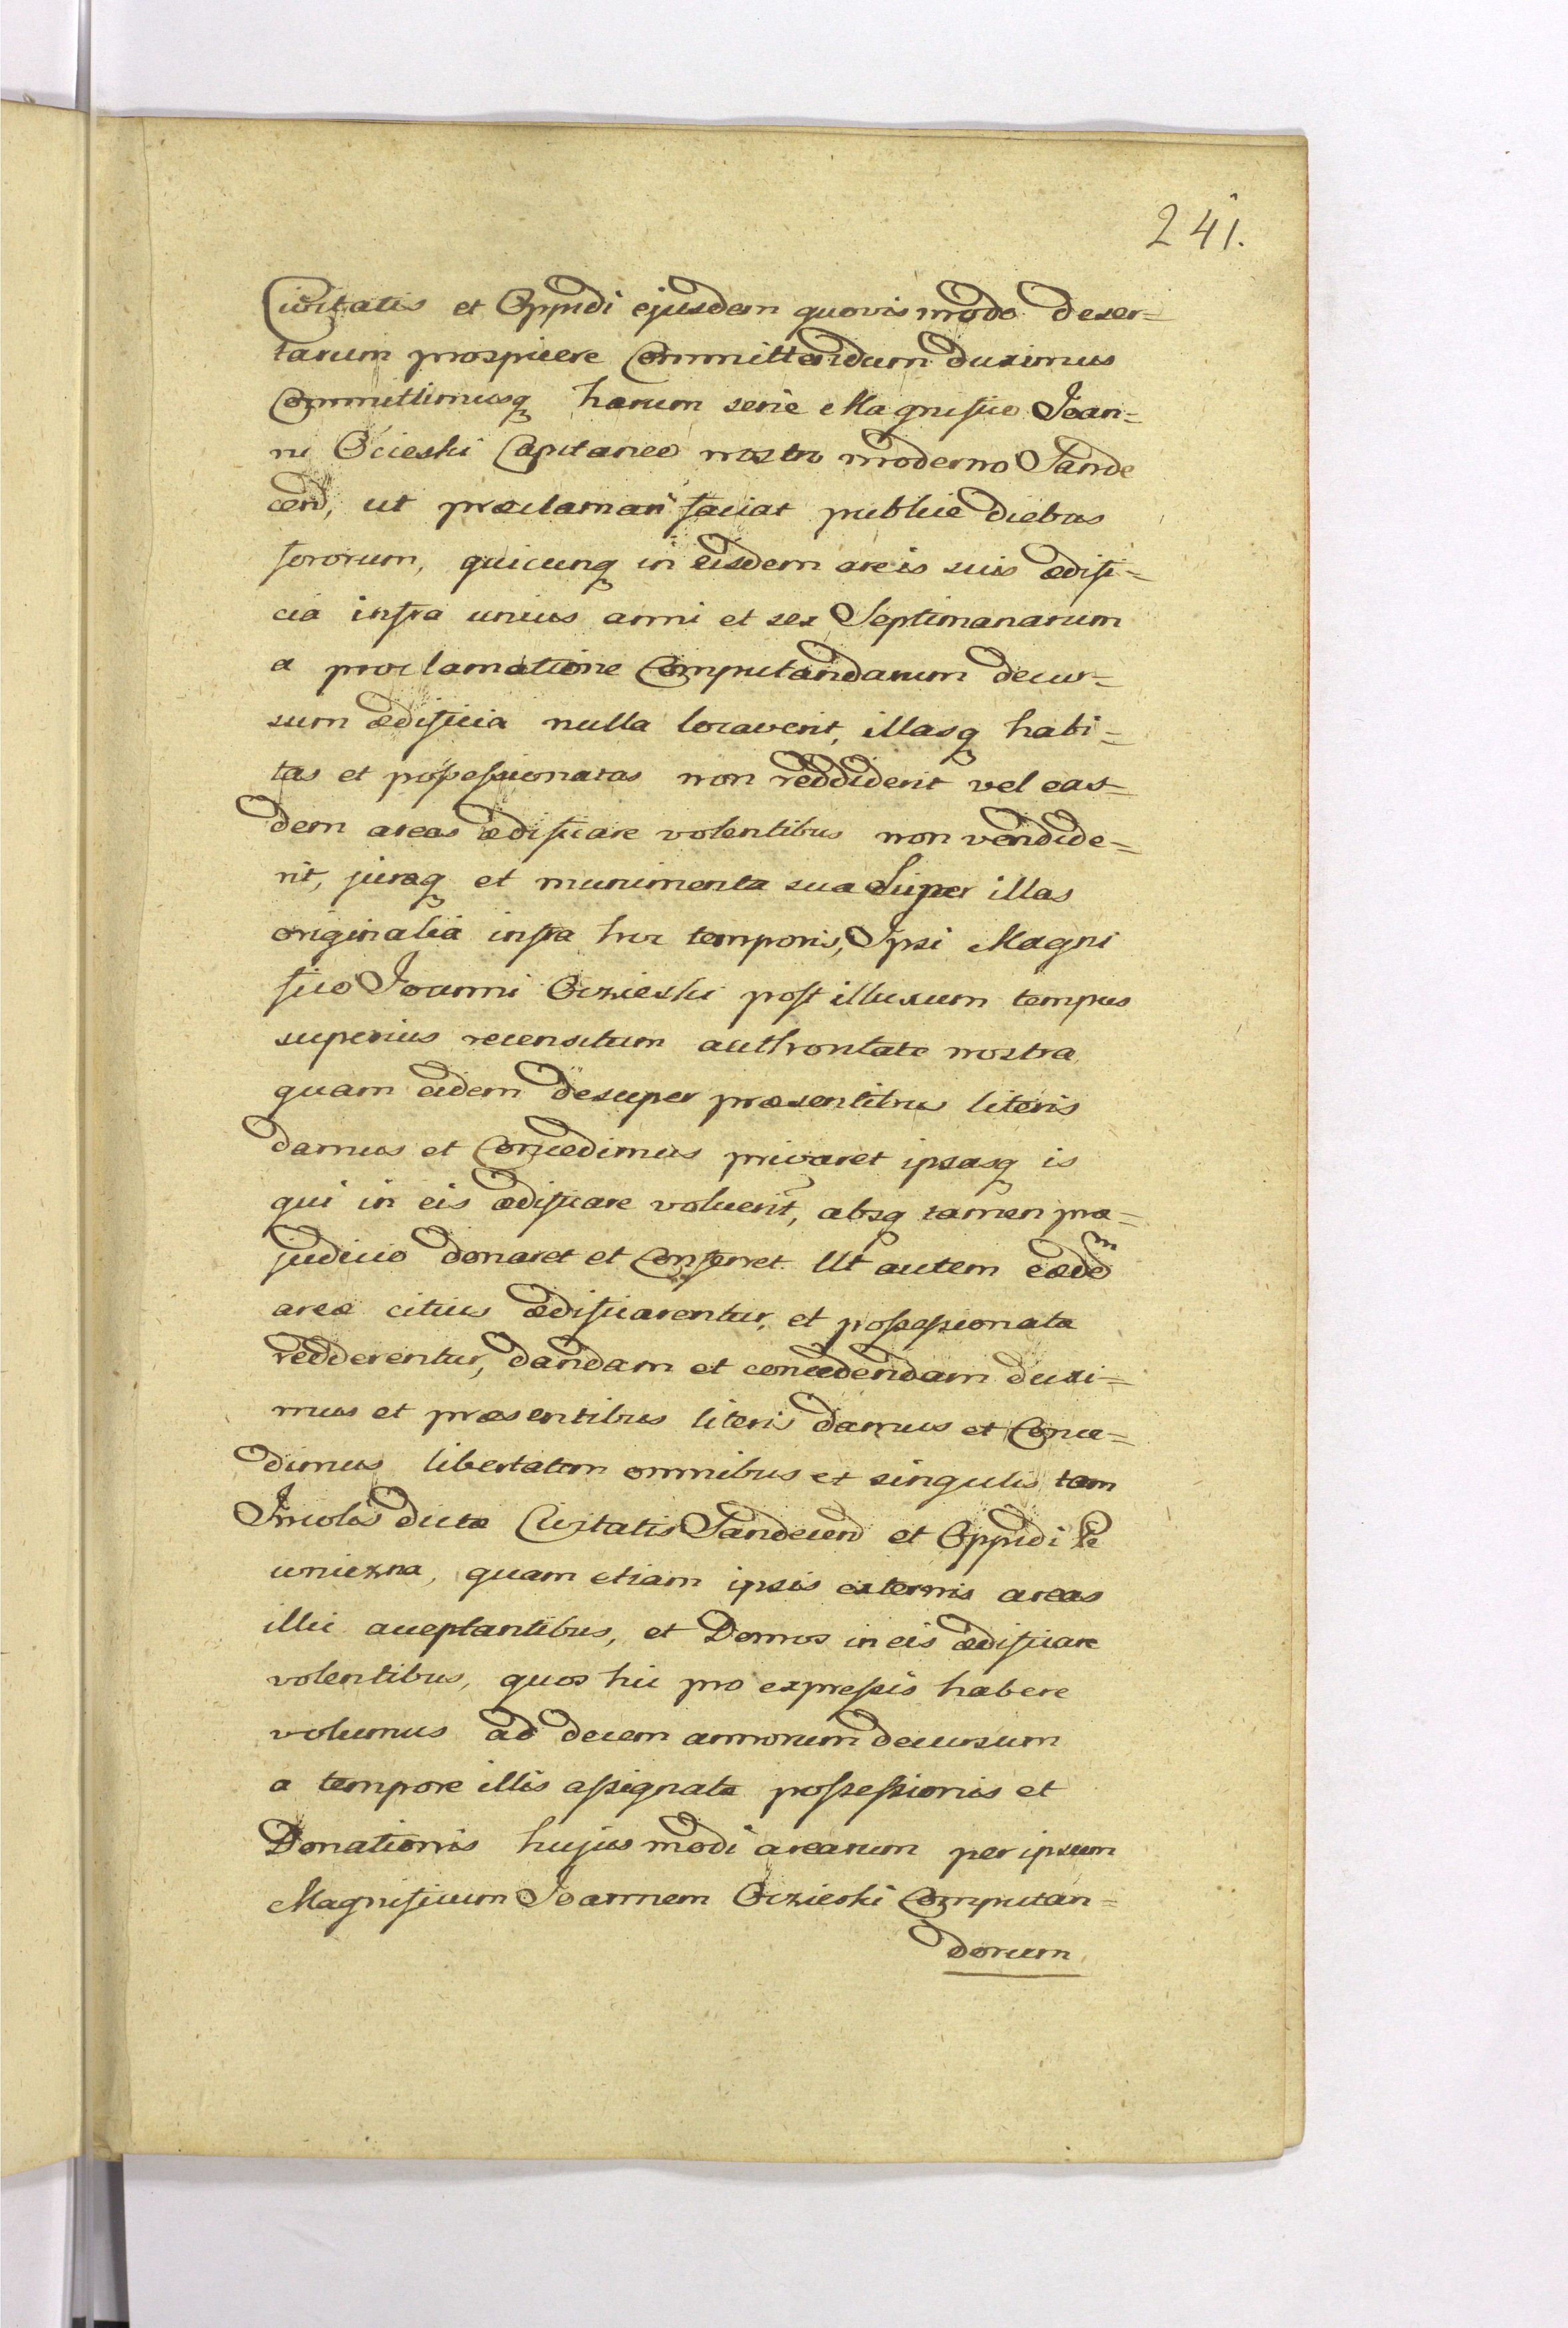 241.
Civitatis et Oppidi ejusdem quovis modo deser=
tarum prospicere Committendum duximus
Committimusq harum serie Magnifico Joan=
ni Ocieski Capitaneo nostro moderno Sande
cen, ut proclamari faciat publice diebus
fororum, quicunq in eisdem areis suis ædifi=
cia infra unius anni et sex Septimanarum
a proclamatione Computandarum decur=
sum ædificia nulla locaverit, illasq habi=
tas et possessionatas non reddiderit vel eas=
dem areas ædificare volentibus non vendide=
rit, juraq et munimenta sua Super illas
originalia infra hoc temporis, Ipsi Magni
fico Joanni Oczieski post illuxum tempus
superius recensitum authoritate nostra,
quam eidem desuper præsentibus literis
damus et Concedimus privaret ipsasq is
qui in eis ædificare voluerit, absq tamen præ=
judicio donaret et Conferret. Ut autem eædem
areæ citius ædificarentur, et possessionata
redderentur, dandam et concedendam duxi=
mus et præsentibus literis damus et Conce=
dimus libertatem omnibus et singulis tam
Incolis dictæ Civitatis Sandecen et Oppidi Pi
wniczna, quam etiam ipsis externis areas
illic acceptantibus, et Domos in eis ædificare
volentibus, quos hic pro expressis habere
volumus ad decem annorum decursum
a tempore illis assignata possessionis et
Donationis hujus modi arearum per ipsum
Magnificum Joannem Oczieski Computan=
dorum